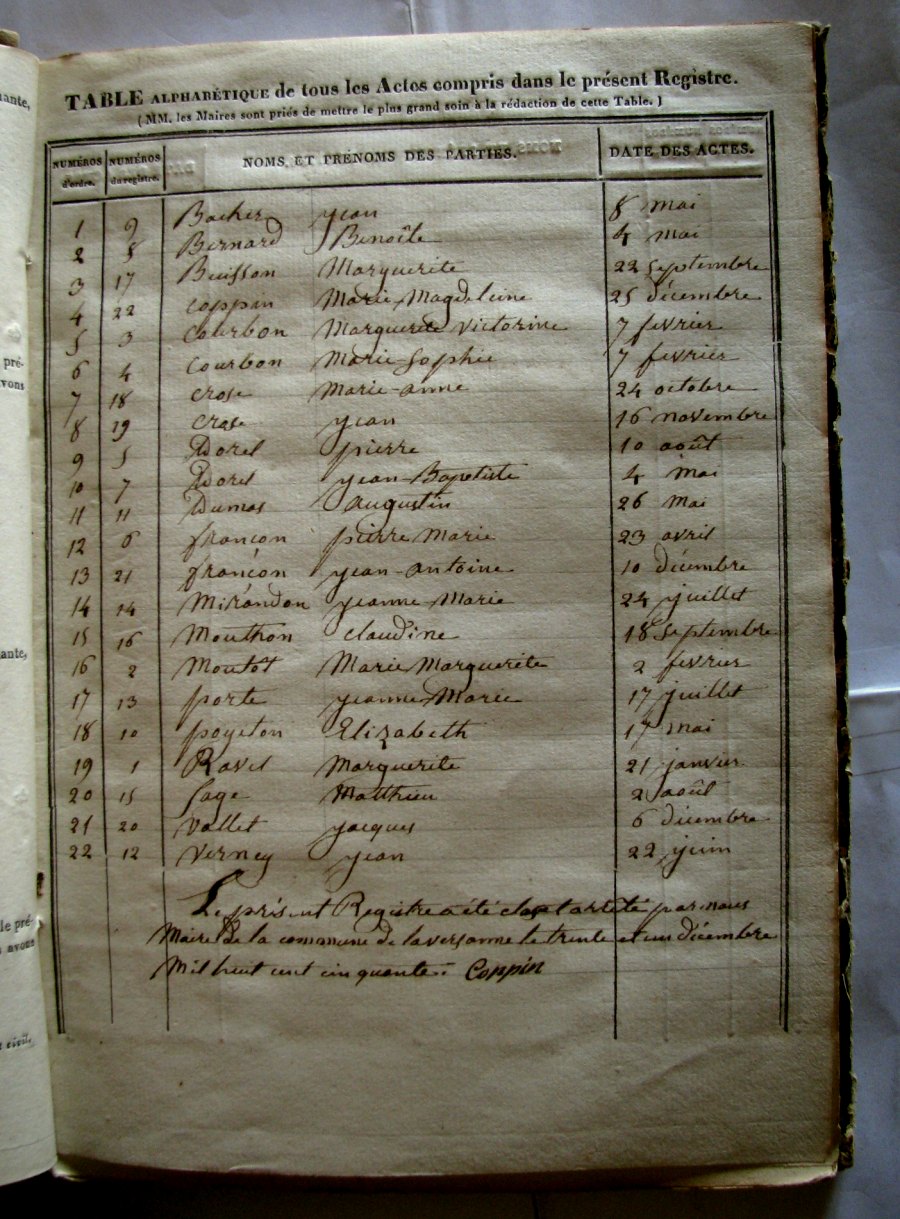 TABLE ALPHABÉTIQUE de tous les Actes compris dans le présent Registre.
( MM. les Maires sont priés de mettre le plus grand soin à la rédaction de cette Table. )
NUMÉROS d'ordre. NUMÉROS du registre. NOMS, ET PRÉNOMS DES PARTIES. DATE DES ACTES.
1 9 Bacher jean 8 mai
2 8 Bernard Benoîte 4 mai
3 17 Buisson Marguerite 22 septembre
4 22 coppin Marie Magdeleine 25 décembre
5 3 courbon Marguerite victorine 7 fevrier
6 4 courbon Marie Sophie 7 fevrier
7 18 crose Marie-anne 24 octobre
8 19 crose jean 16 novembre
9 5 Dorel pierre 10 août
10 7 Dorel jean-Baptiste 4 mai
11 11 Dumas augustin 26 mai
12 6 françon pierre Marie 23 avril
13 21 françon jean-antoine 10 décembre
14 14 Mirandon jeanne Marie 24 juillet
15 16 Mouthon claudine 18 septembre
16 2 Moutot Marie Marguerite 2 fevrier
17 13 porte jeanne Marie 17 juillet
18 10 poyeton Elizabeth 17 mai
19 1 Ravel Marguerite 21 janvier
20 15 Sage Matthieu 2 août
21 20 vallet jacques 6 décembre
22 12 verney jean 22 juin
Le présent Registre a été clos et arrêté par nous
Maire de la commune de laversanne le trente et un décembre
Mil huit cent cinquante. Coppin
ante,
pré-
vons
ante,
le pré-
avons
civil.